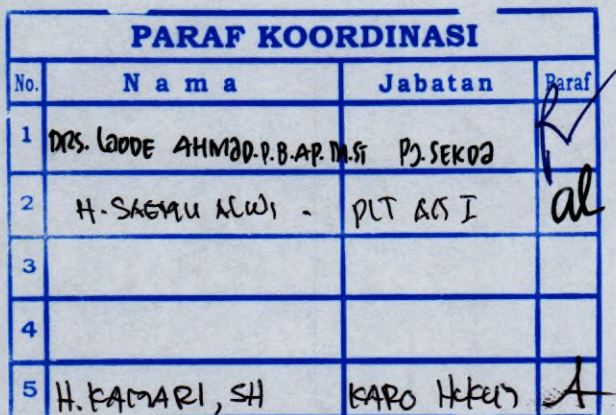 PARAF KOORDINASI
No. Nama Jabatan Paraf
1 DRS. LAODE AHMAD.P.B.AP.M.Si PJ.SEKDA
2 H. SAEMU ALWI . PLT AS I
3
4
5 H. KAMARI, SH KARO HUKUM